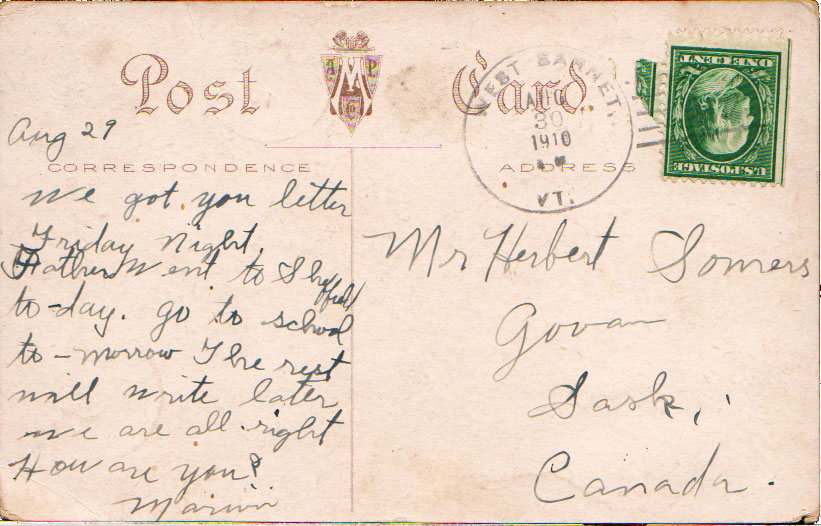 Post Card
A M P C
Aug 29
CORRESPONDENCE
We got you letter
Friday night.
Father went to Sheffield
to-day. go to school
to-morrow The rest
will write later
we are all right
How are you?
Marvin
ADDRESS
WEST BARNET,
AUG
30
1910
A M
VT.
ONE CENT
U.S. POSTAGE
Mr Herbert Somers
Govan
Sask,
Canada.